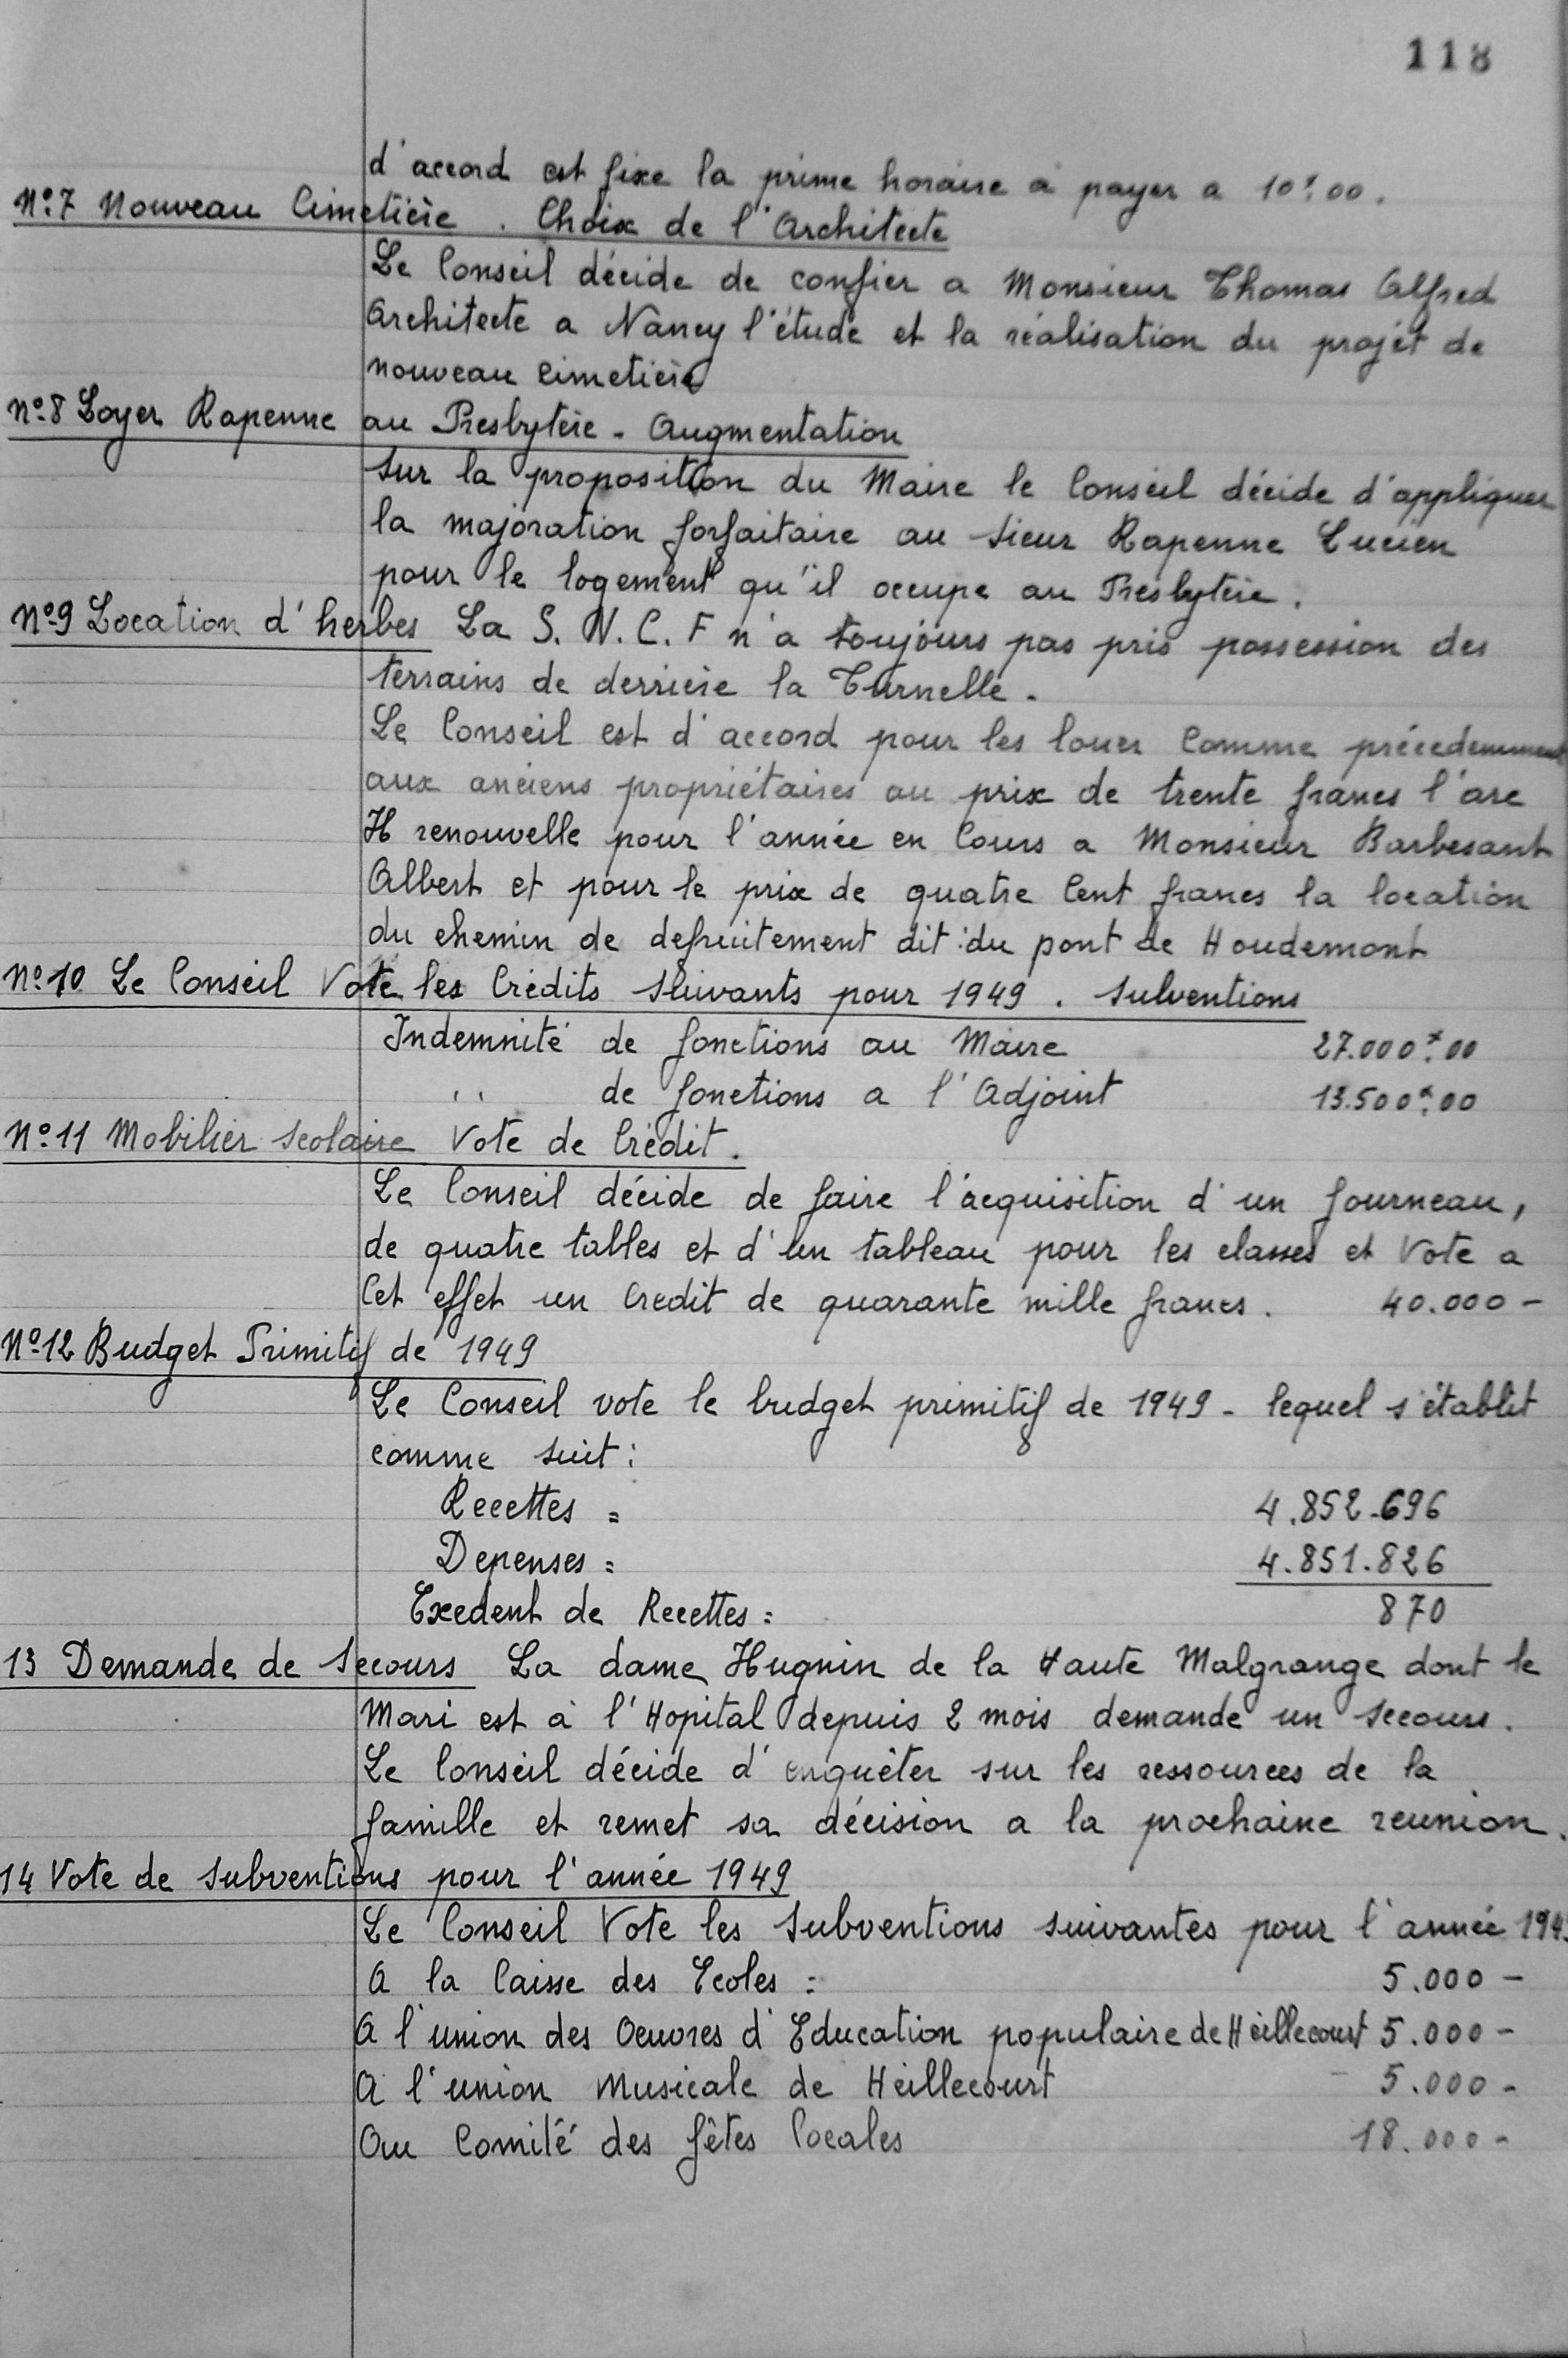 118
d'accord est fixe la prime horaire a payer a 10f00.
No.7 Nouveau Cimetière. Choix de l'Architecte
Le Conseil décide de confier a Monsieur Thomas Alfred
Architecte a Nancy l'étude et la réalisation du projet de
nouveau cimetière
No.8 Loyer Rapenne au Presbytère - Augmentation
Sur la proposition du Maire le Conseil décide d'appliquer
la majoration forfaitaire au sieur Rapenne Lucien
pour le logement qu'il occupe au Presbytère.
No.9 Location d'herbes La S.N.C.F n'a toujours pas pris possession des
terrains de derrière la Turnelle.
Le Conseil est d'accord pour les louer comme précedemment
aux anciens propriétaires au prix de trente francs l'are
Il renouvelle pour l'année en cours a Monsieur Barbesant
Albert et pour le prix de quatre cent francs la location
du chemin de defruitement dit: du pont de Houdemont
No.10 Le Conseil Vote les Crédits suivants pour 1949. Subventions
Indemnité de fonctions au Maire 27.000f00
'' de fonctions a l'Adjoint 13.500f00
No.11 Mobilier scolaire Vote de Crédit.
Le Conseil décide de faire l'acquisition d'un fourneau,
de quatre tables et d'un tableau pour les classes et Vote a
Cet effet un Credit de quarante mille francs. 40.000 -
No.12 Budget Primitif de 1949
Le Conseil vote le budget primitif de 1949 - lequel s'établit
comme suit:
Recettes = 4.852.696
Depenses = 4.851.826
Exedent de Recettes = 870
13 Demande de Secours La dame Hugnin de la Haute Malgrange dont le
Mari est à l'Hopital depuis 2 mois demande un secours.
Le Conseil décide d'enquêter sur les ressources de la
famille et remet sa décision a la prochaine reunion.
14 Vote de subventions pour l'année 1949
Le Conseil Vote les Subventions suivantes pour l'année 1949
A la Caisse des Ecoles = 5.000 -
A l'union des Oeuvres d'Education populaire de Heillecourt 5.000 -
A l'union Musicale de Heillecourt 5.000 -
Au Comité des fêtes locales 18.000 -